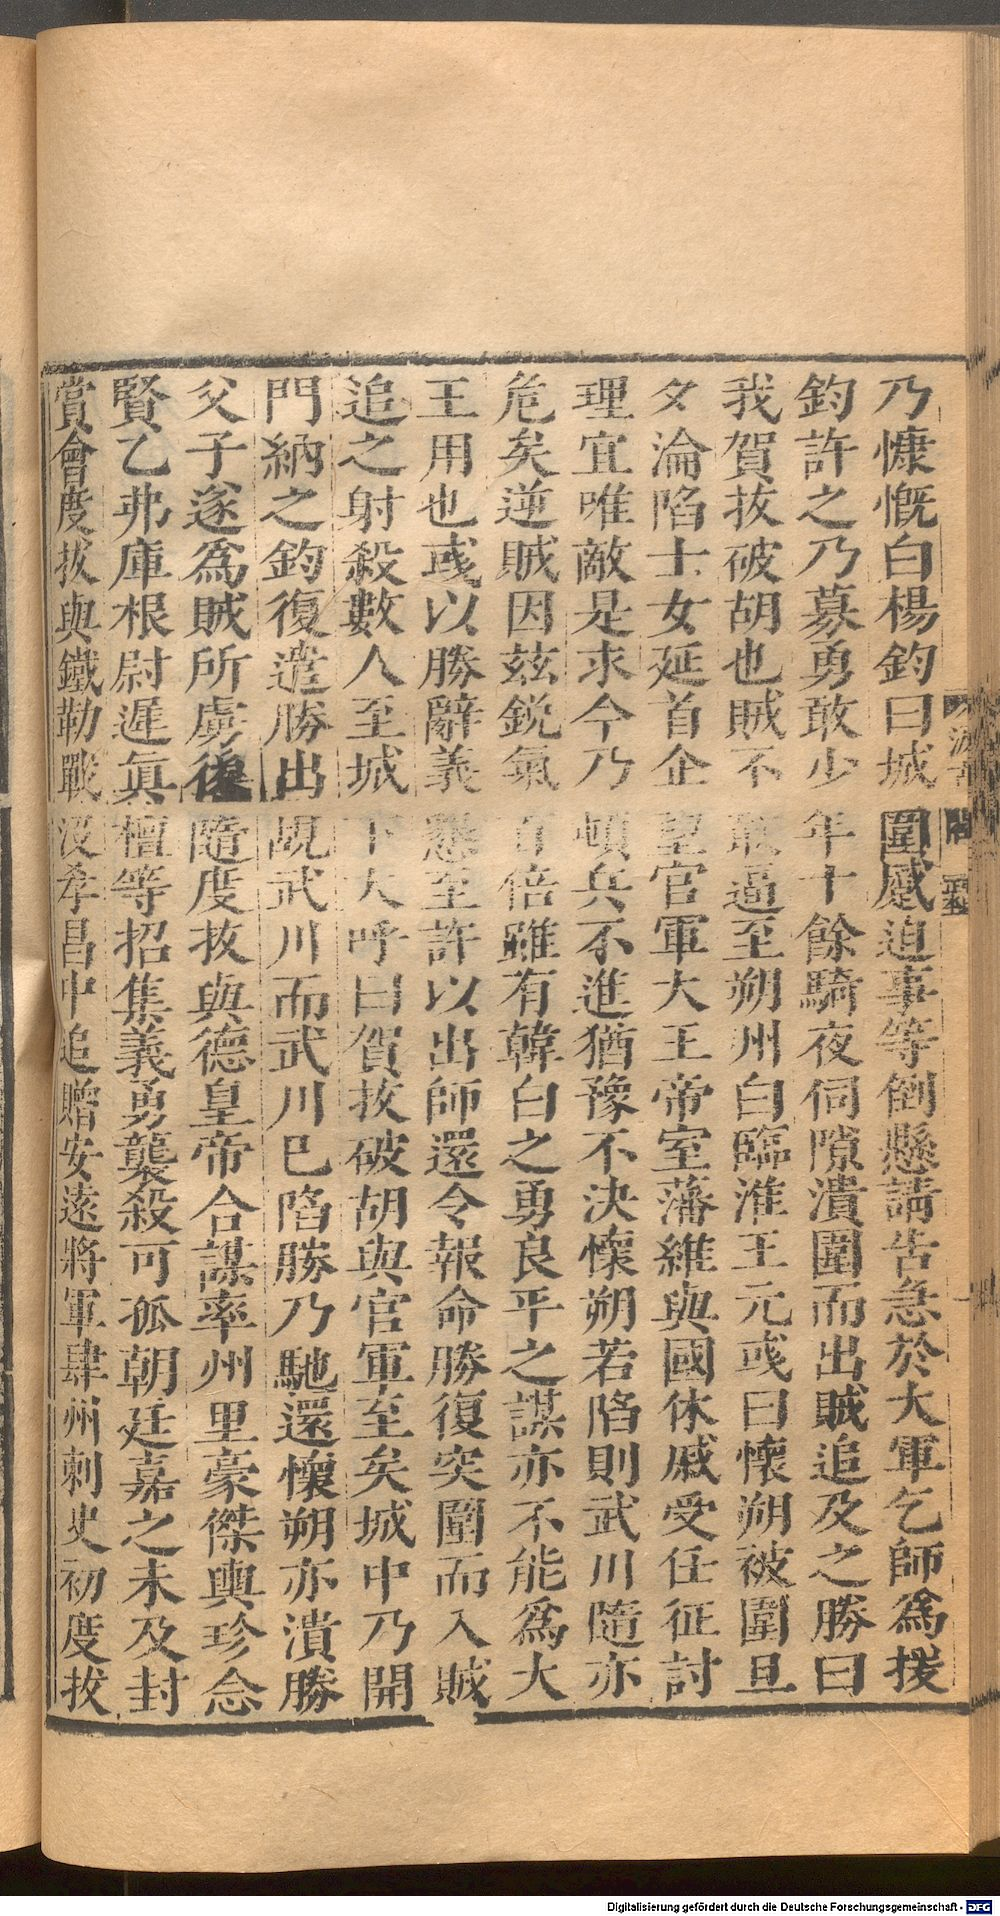 乃慷慨白楊鈞曰城圍蹙迫事等倒懸請告急於大軍乞師爲援
鈞許之乃募勇敢少年十餘騎夜伺隙潰圍而出賊追及之勝曰
我賀拔破胡也賊不敢逼至朔州白臨淮王元彧曰懷朔被圍旦
夕淪陷士女延首企望官軍大王帝室藩維與國休戚受任征討
理宜唯敵是求今乃頓兵不進猶豫不決懷朔若陷則武川隨亦
危矣逆賊因玆銳氣百倍雖有韓白之勇良平之謀亦不能爲大
王用也彧以勝辭義懇至許以出師還令報命勝復突圍而入賊
追之射殺數人至城下大呼曰賀拔破胡與官軍至矣城中乃開
門納之鈞復遣勝出覘武川而武川已陷勝乃馳還懷朔亦潰勝
父子遂爲賊所虜後隨度拔與德皇帝合謀率州里豪傑輿珍念
賢乙弗庫根尉遲眞檀等招集義勇襲殺可孤朝廷嘉之未及封
賞會度拔與鐵勒戰沒孝昌中追贈安遠將軍肆州刺史初度拔
Digitalisierung gefördert durch die Deutsche Forschungsgemeinschaft - DFG